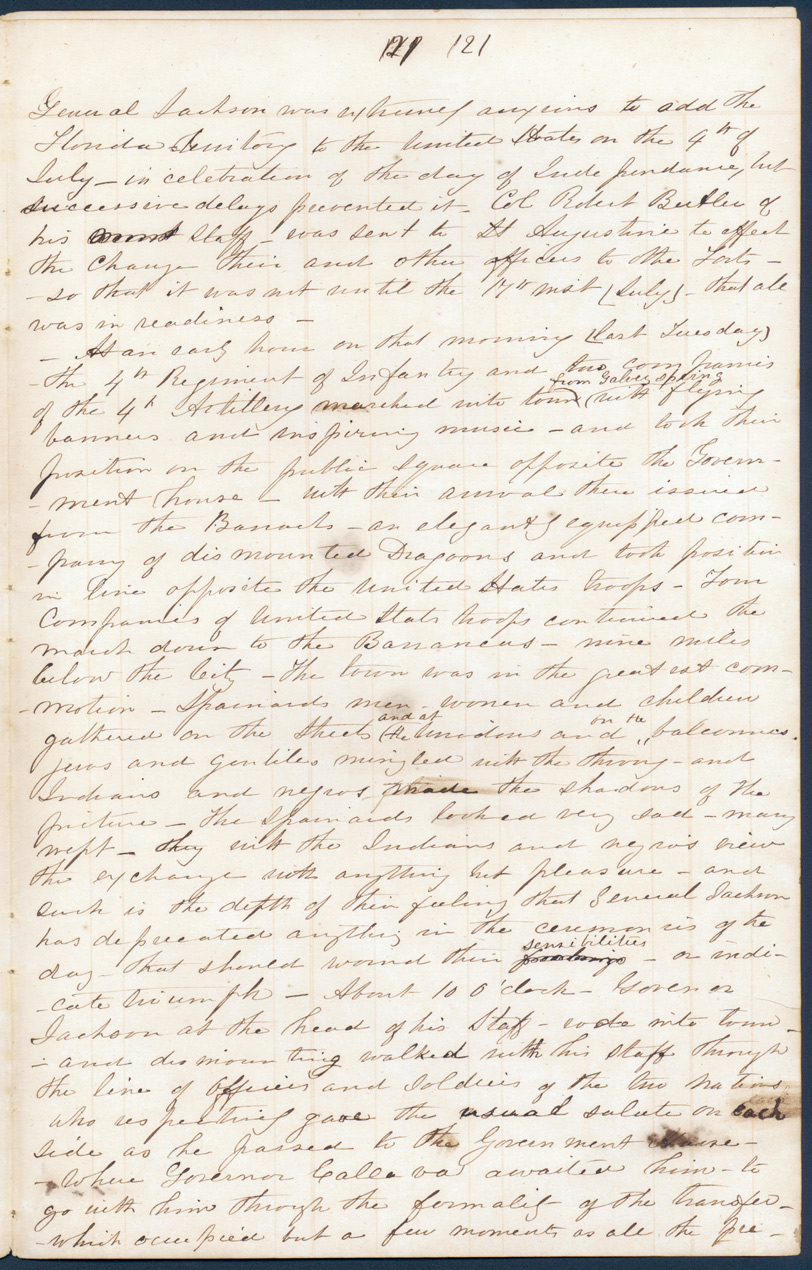 121 121
General Jackson was extremely anxious to add the
Florida Territory to the United States on the 4th of
July – in celebration of the day of Independance, but
successive delays prevented it – Col Robert Butler of
his staff – was sent to St Augustine to effect
the change their and other officers to the Forts –
– so that it was not until the 17th inst (July) – that all
was in readiness –
– At an early hour on that morning (last Tuesday)
– the 4th Regiment of Infantry and two companies
from Galvez spring
of the 4th Artillery marched into town (with flying
banners and inspiring music – and took their
position on the public square opposite the Govern-
– ment house – with their arrival there issued
from the Barracks – an elegantly equipped com-
– pany of dismounted Dragoons and took position
in line opposite the United States troops – Four
Companies of United States troops continued the
march down to the Barrancas – nine miles
below the City – The town was in the greatest com-
– motion – Spainiards men – women and children
and at on the
gathered on the streets (the windows and " balconies.
Jews and Gentiles mingled with the throng – and
Indians and negros made the shadows of the
picture – The Spainiards looked very sad – many
wept – they with the Indians and negros view
the exchange with anything but pleasure – and
such is the depth of their feeling that General Jackson
has deprecated anything in the ceremonies of the
sensibilities
day – that should wound their feelings – or indi-
– cate triumph – About 10 O'clock – Governor
Jackson at the head of his Staff – rode into town –
– and dismounting walked with his staff through
the line of officers and Soldiers of the two Nations
who respecting gave the usual salute on each
side as he passed to the Government House –
– Where Governor Callava awaited him – to
go with him through the formality of the transfer –
– which occupied but a few moments as all the pre –